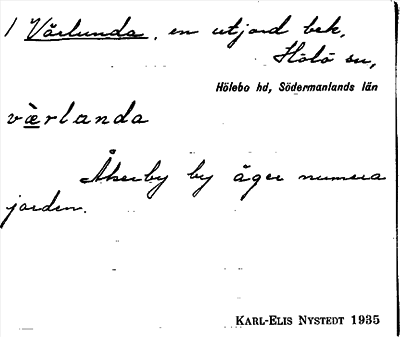 1 Vårlunda, en utjord bek,
Hölö sn,
Hölebo hd, Södermanlands län
vὲrlanda
Åkerby by äger numera
jorden.
KARL-ELIS NYSTEDT 1935